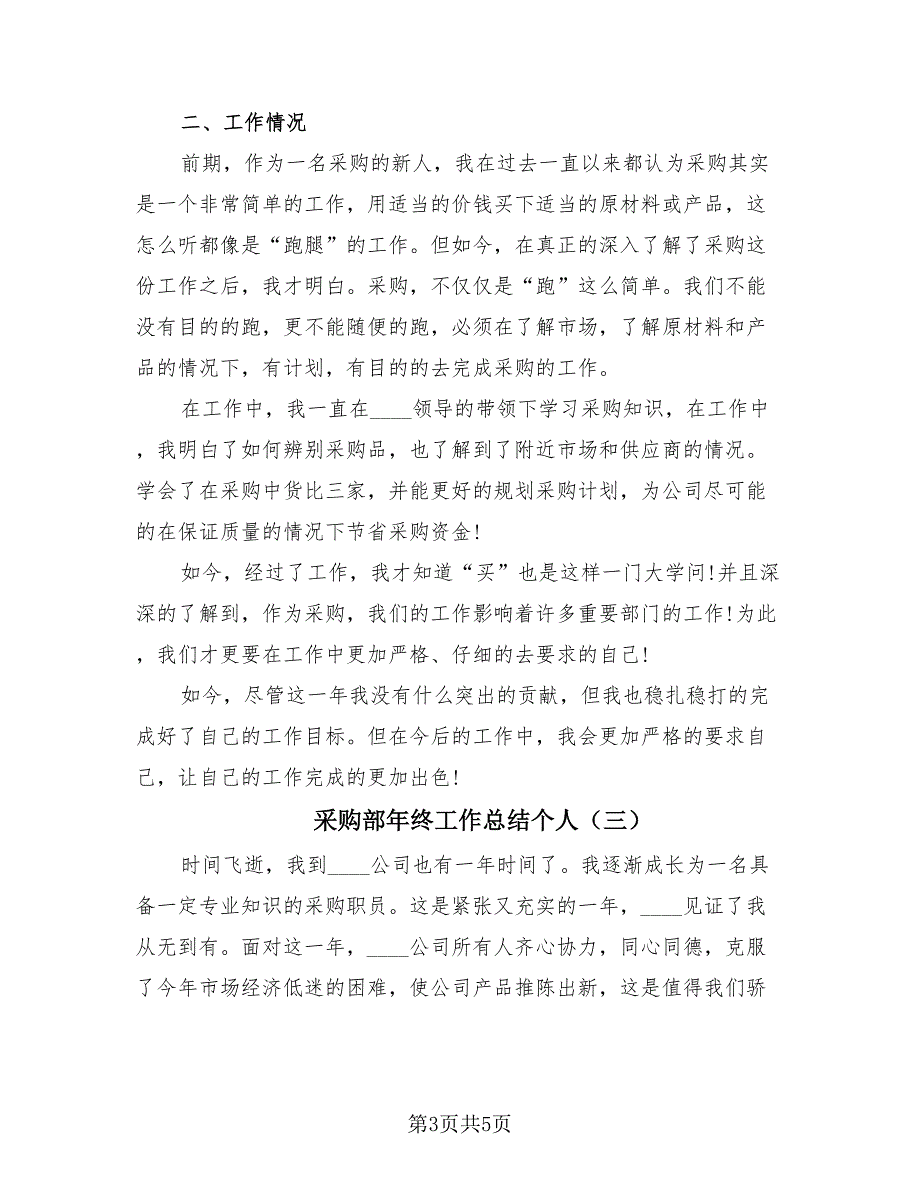 二、工作情况
前期，作为一名采购的新人，我在过去一直以来都认为采购其实
是一个非常简单的工作，用适当的价钱买下适当的原材料或产品，这
怎么听都像是“跑腿”的工作。但如今，在真正的深入了解了采购这
份工作之后，我才明白。采购，不仅仅是“跑”这么简单。我们不能
没有目的的跑，更不能随便的跑，必须在了解市场，了解原材料和产
品的情况下，有计划，有目的的去完成采购的工作。
在工作中，我一直在____领导的带领下学习采购知识，在工作中
，我明白了如何辨别采购品，也了解到了附近市场和供应商的情况。
学会了在采购中货比三家，并能更好的规划采购计划，为公司尽可能
的在保证质量的情况下节省采购资金!
如今，经过了工作，我才知道“买”也是这样一门大学问!并且深
深的了解到，作为采购，我们的工作影响着许多重要部门的工作!为此
，我们才更要在工作中更加严格、仔细的去要求的自己!
如今，尽管这一年我没有什么突出的贡献，但我也稳扎稳打的完
成好了自己的工作目标。但在今后的工作中，我会更加严格的要求自
己，让自己的工作完成的更加出色!
采购部年终工作总结个人（三）
时间飞逝，我到____公司也有一年时间了。我逐渐成长为一名具
备一定专业知识的采购职员。这是紧张又充实的一年，____见证了我
从无到有。面对这一年，____公司所有人齐心协力，同心同德，克服
了今年市场经济低迷的困难，使公司产品推陈出新，这是值得我们骄
第3页共5页